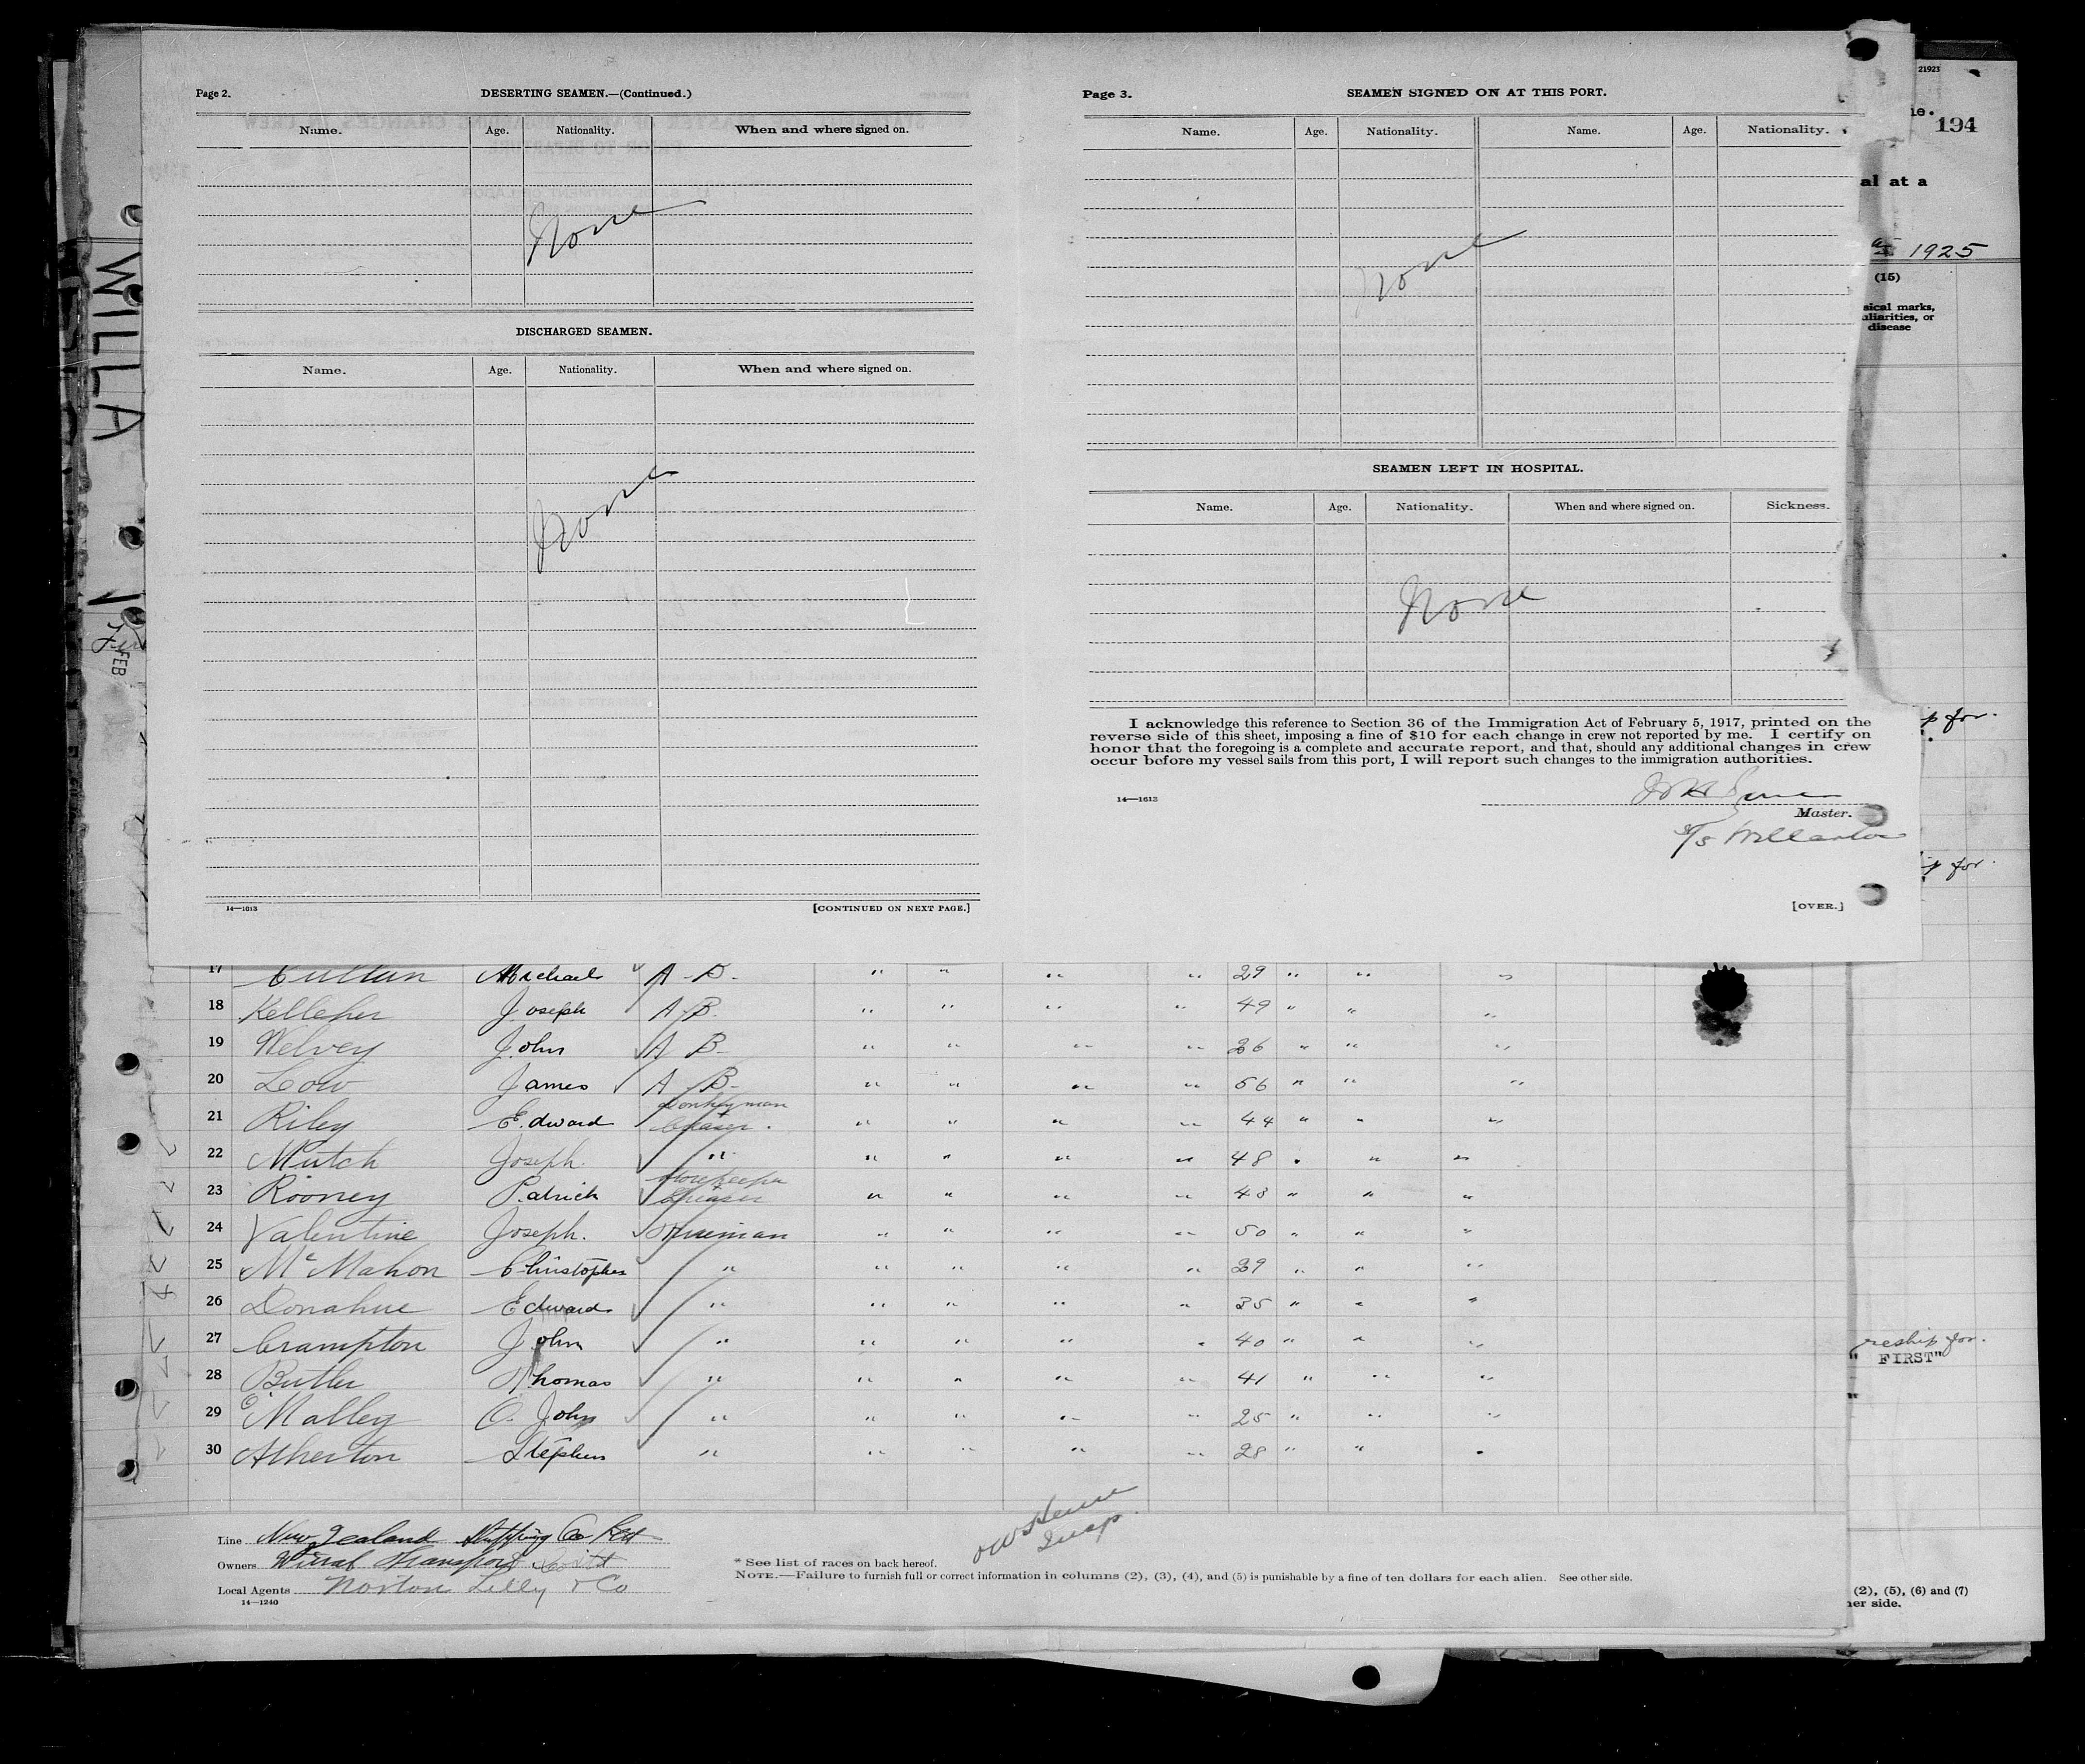 Page 2.
DESERTING SEAMEN.—(Continued.)
Name. Age. Nationality. When and where signed on.
None
DISCHARGED SEAMEN.
Name. Age. Nationality. When and where signed on.
None
14—1613
[CONTINUED ON NEXT PAGE.]
Page 3.
SEAMEN SIGNED ON AT THIS PORT.
Name. Age. Nationality. Name. Age. Nationality.
None
SEAMEN LEFT IN HOSPITAL.
Name. Age. Nationality. When and where signed on. Sickness.
None
I acknowledge this reference to Section 36 of the Immigration Act of February 5, 1917, printed on the
reverse side of this sheet, imposing a fine of $10 for each change in crew not reported by me. I certify on
honor that the foregoing is a complete and accurate report, and that, should any additional changes in crew
occur before my vessel sails from this port, I will report such changes to the immigration authorities.
14—1613
Master.
S/S
[OVER.]
21923
194
al at a
1925
(15)
sical marks,
uliarities, or
disease
p for.
p for.
reship for.
" FIRST"
(2), (5), (6) and (7)
her side.
WILLA
FEB
17 Michael A-B- " " " " 29 " " "
18 Kelleher Joseph A-B. " " " " 49 " " "
19 Welvey John A B- " " " " 26 " " "
20 Low James A-B- " " " " 56 " " "
21 Riley Edward Donkeyman Greaser. " " " " 44 " " "
22 Mutch Joseph " " " " " 48 " " "
23 Rooney Patrick Storekeeper Greaser " " " " 43 " " "
24 Valentine Joseph. Fireman " " " " 50 " " "
25 McMahon Christopher " " " " " 29 " " "
26 Donahue Edward " " " " " 35 " " "
27 Crampton John " " " " " 40 " " "
28 Butler Thomas " " " " " 41 " " "
29 O'Malley O. John " " " " " 25 " " "
30 Atherton Stephen " " " " " 28 " " "
Line New Zealand Shipping Co Ltd
Owners Wirral Transport Co Ltd
Local Agents Norton Lilly & Co
14—1240
Insp.
* See list of races on back hereof.
NOTE.—Failure to furnish full or correct information in columns (2), (3), (4), and (5) is punishable by a fine of ten dollars for each alien. See other side.